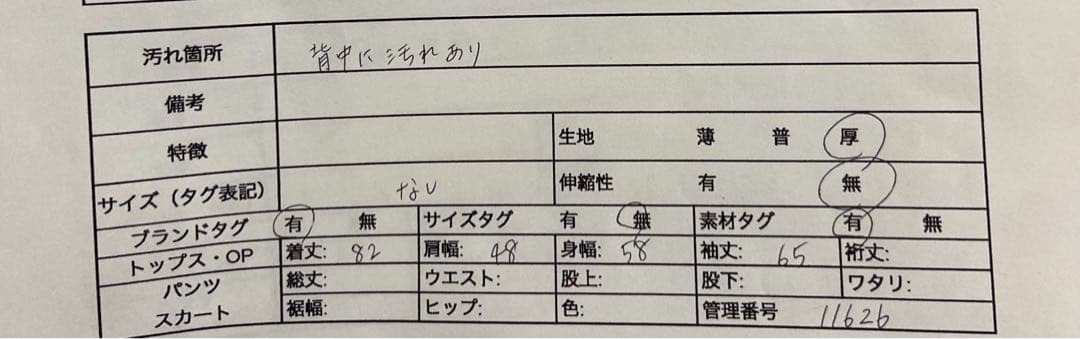 汚れ箇所 背中に汚れあり
備考
特徴 生地 薄 普 厚
サイズ（タグ表記） なし 伸縮性 有 無
ブランドタグ 有 無 サイズタグ 有 無 素材タグ 有 無
トップス・OP 着丈: 82 肩幅: 48 身幅: 58 袖丈: 65 裄丈:
パンツ 総丈: ウエスト: 股上: 股下: ワタリ:
スカート 裾幅: ヒップ: 色: 管理番号 11626